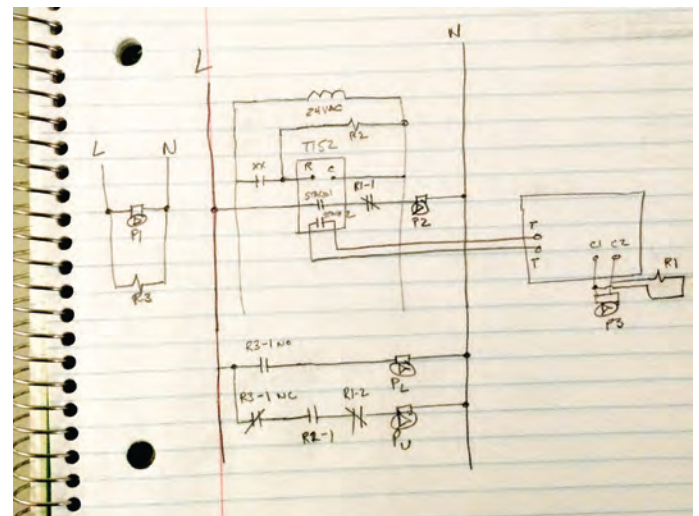 L
N
24VAC
R2
T152
XX
R
C
STAGE1
R1-1
STAGE 2
P2
L N
P1
R3
T
T
C1 C2
R1
P3
R3-1 NO
PL
R3-1 NC
R1-2
R2-1
PU